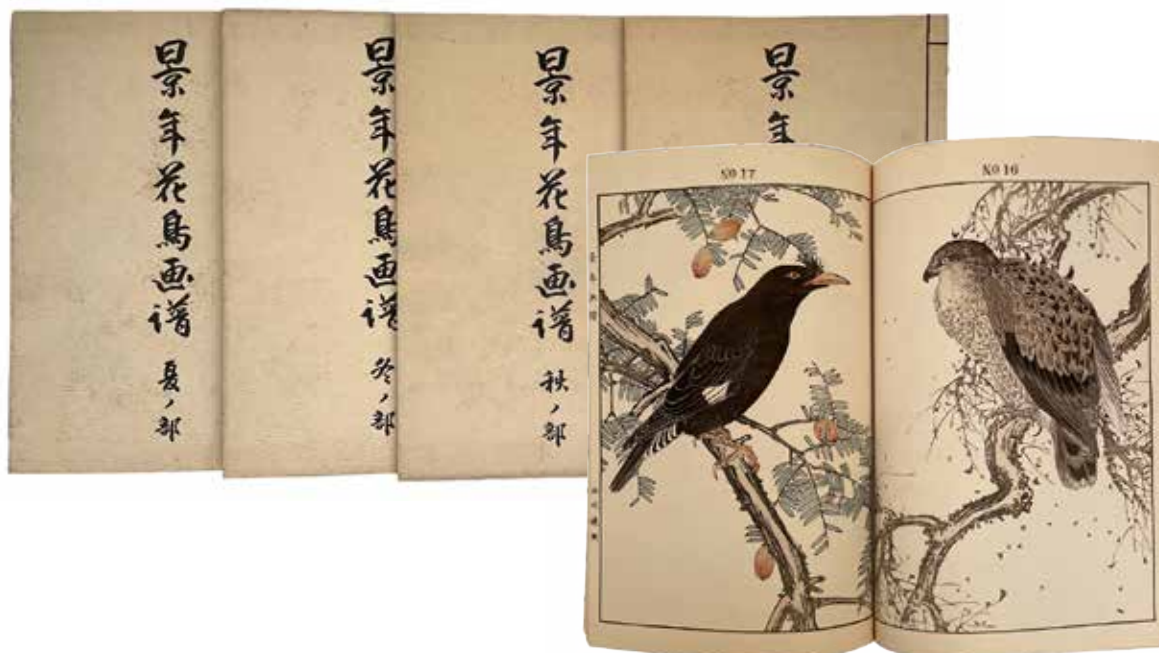 景年花鳥画谱
夏ノ部
景年花鳥画谱
冬ノ部
景年花鳥画谱
秋ノ部
景年
No 17
No 16